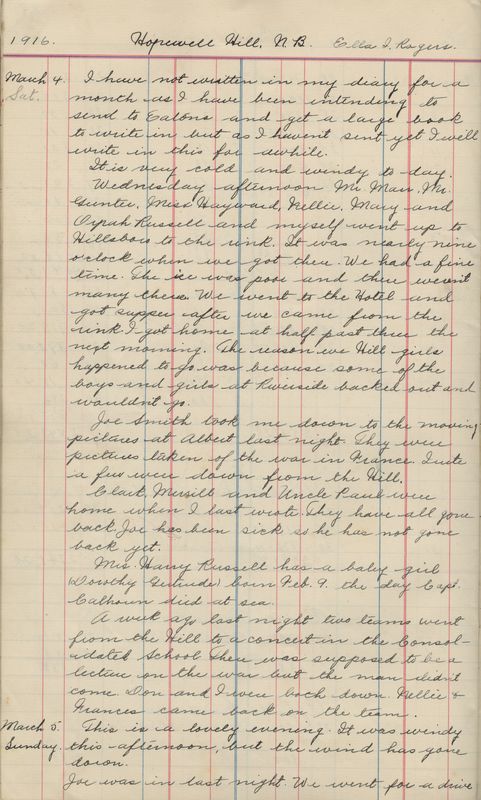 1916. Hopewell Hill, N.B. Ella I. Rogers.
March 4. I have not written in my diary for a
Sat. month as I have been intending to
send to Eatons and get a large book
to write in but as I havent sent yet I will
write in this for awhile.
It is very cold and windy to day.
Wednesday afternoon Mr. Marr, Mr.
Gunter, Miss Hayward, Nellie, Mary and
Orpah Russell and myself went up to
Hillsboro to the rink. It was nearly nine
o'clock when we got there. We had a fine
time. The ice was poor and there weren't
many there. We went to the Hotel and
got supper after we came from the
rink. I got home at half past three the
next morning. The reason we Hill girls
happened to go was because some of the
boys and girls at Riverside backed out and
wouldn't go.
Joe Smith took me down to the moving
pictures at Albert last night. They were
pictures taken of the war in France. Quite
a few were down from the Hill.
Clark, Merrill and Uncle Paul were
home when I last wrote. They have all gone
back. Joe has been sick so he has not gone
back yet.
Mrs. Harry Russell has a baby girl
(Dorothy Gertrude) born Feb. 9. the day Capt.
Calhoun died at sea.
A week ago last night two teams went
from the Hill to a concert in the Consol-
idated School. There was supposed to be a
lecture on the war but the man didn't
come. Don and I were both down. Nellie &
Frances came back on the team.
March 5. This is a lovely evening. It was windy
Sunday. this afternoon, but the wind has gone
down.
Joe was in last night. We went for a drive